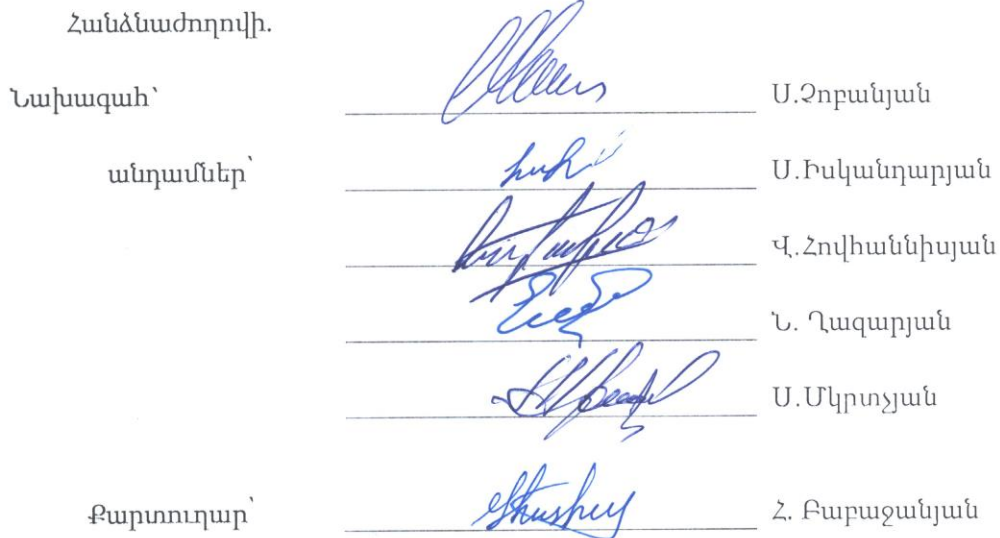 Հանձնաժողովի.
Նախագահ՝ Ս.Չոբանյան
անդամներ՝ Ս.Իսկանդարյան
Վ.Հովհաննիսյան
Ն. Ղազարյան
Ս.Մկրտչյան
Քարտուղար՝ Հ. Բաբաջանյան